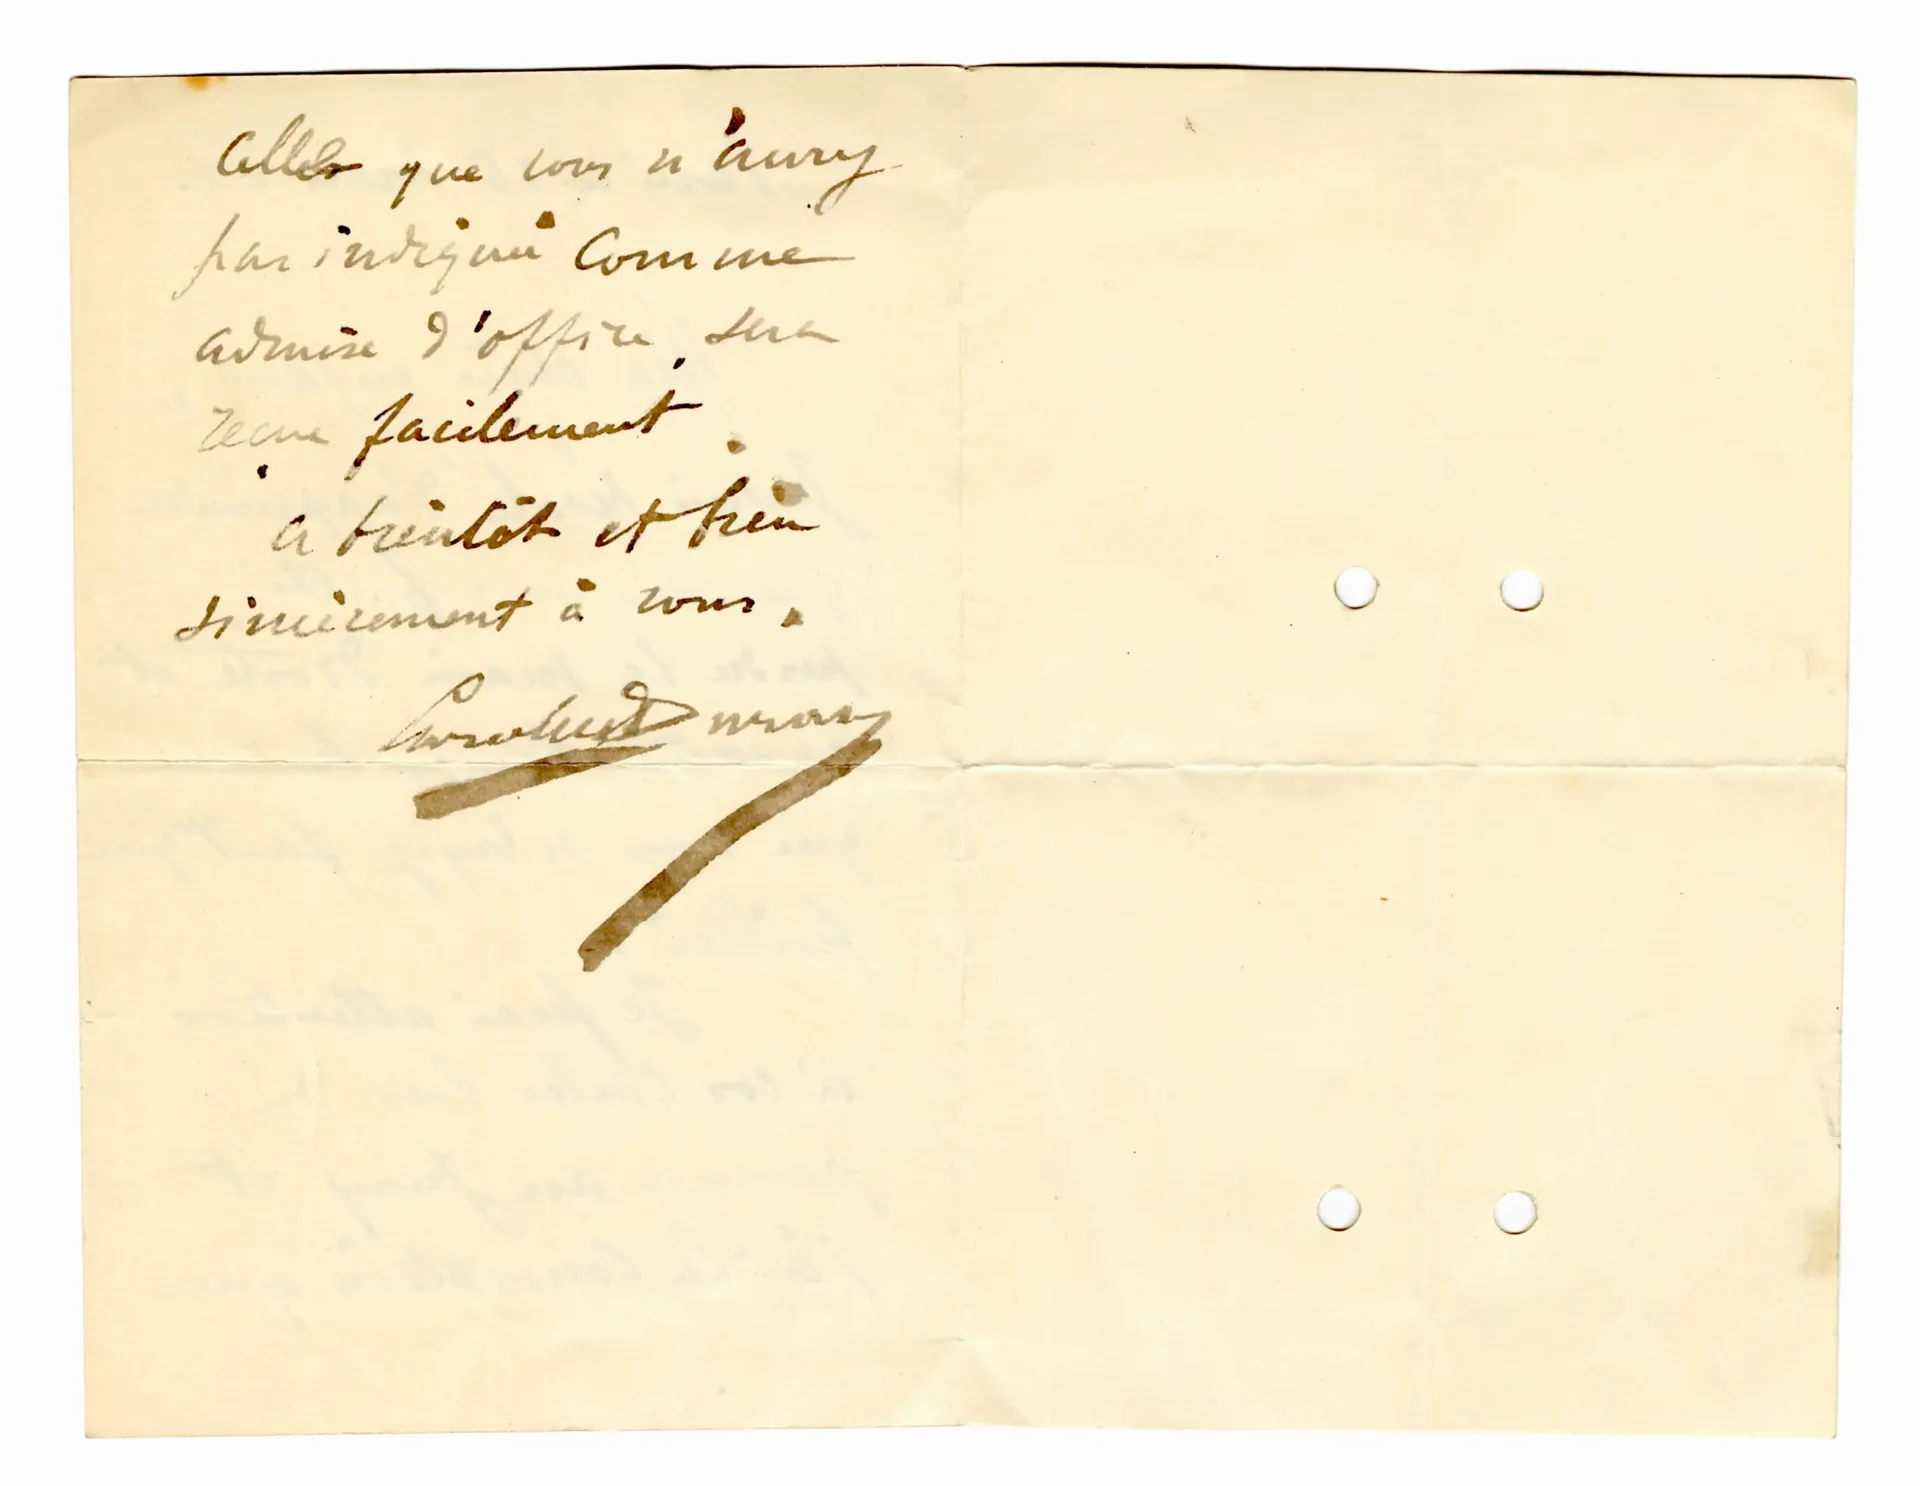 celles que vous n'aurez
pas indiqué comme
admise d'office, sera
reçue facilement.
a bientôt et bien
sincèrement à vous.
Carolus Duran